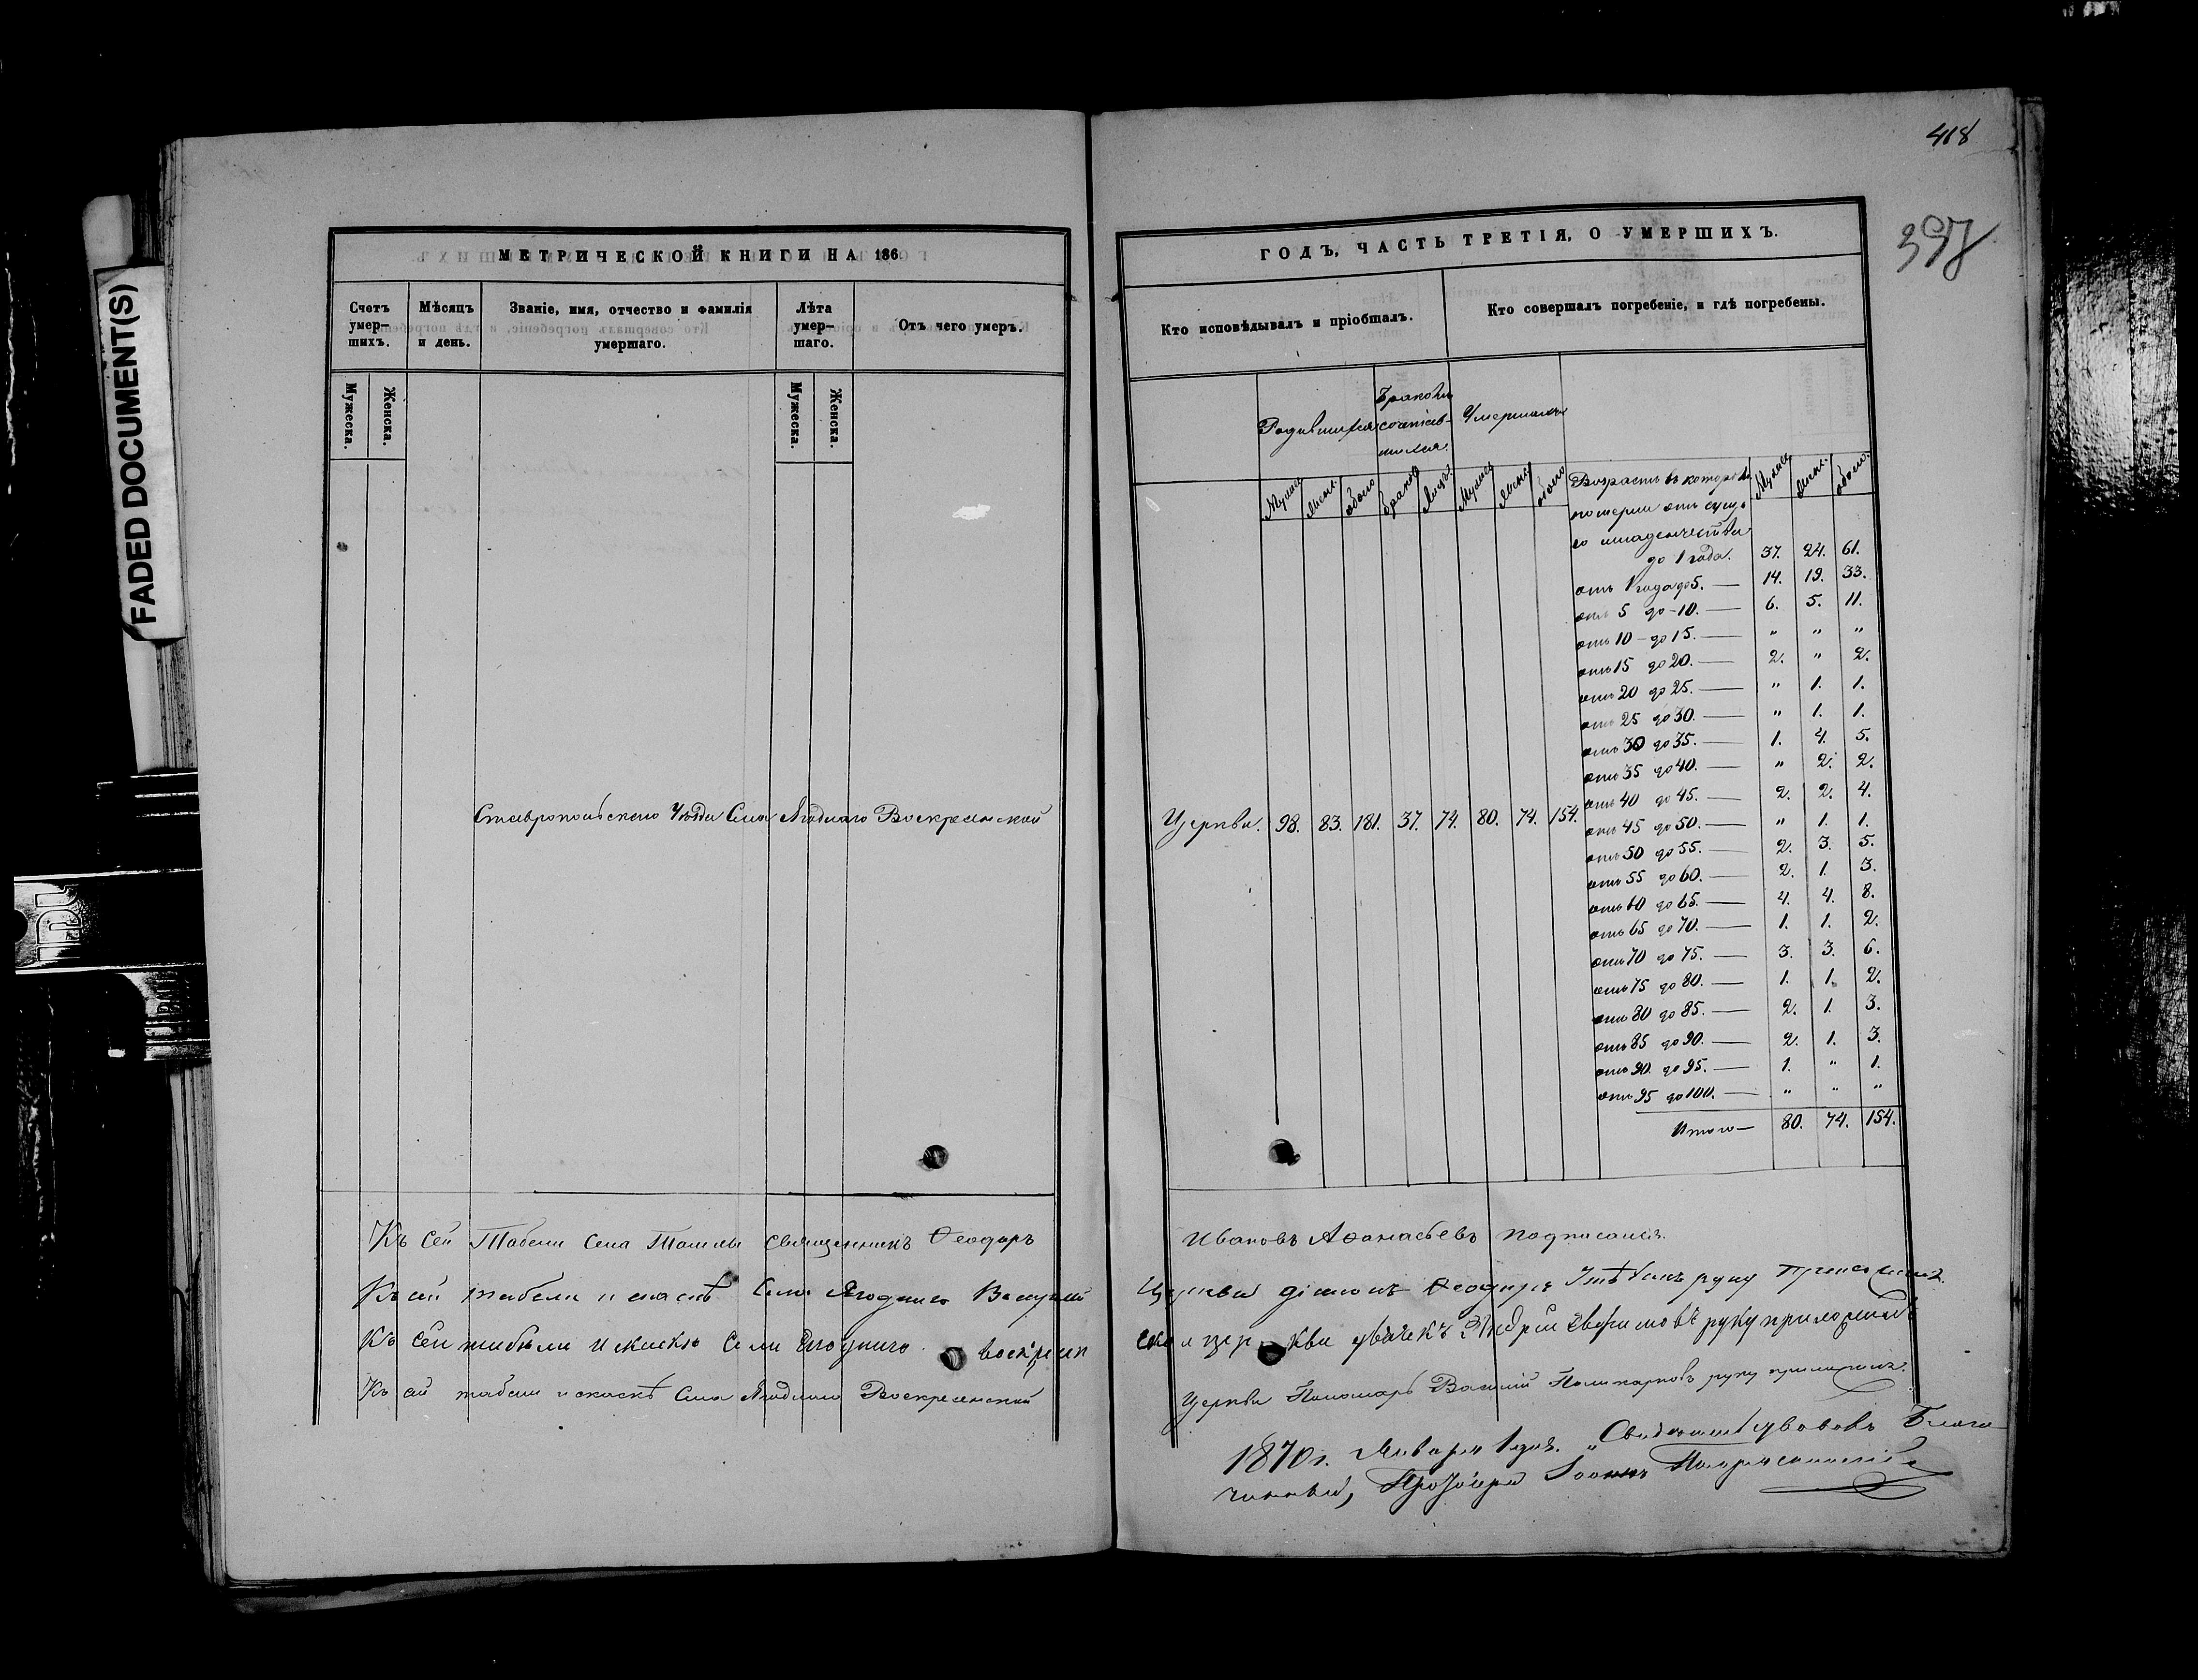 418
397
FADED DOCUMENT(S)
МЕТРИЧЕСКОЙ КНИГИ НА 186
Счетъ умер-шихъ.
Мѣсяцъ и день.
Званіе, имя, отчество и фамилія умершаго.
Лѣта умер-шаго.
Отъ чего умеръ.
Мужеска.
Женска.
Мужеска.
Женска.
Ставропольскаго Уѣзда Села Ягоднаго Воскресенской
Къ сей Табели Села Ташлы священникъ Ѳеодоръ
Къ сей табели и Села Ягоднаго
Къ сей табели и Села Ягоднаго воскресен
Къ сей табели и Села Ягоднаго Воскресенской
ГОДЪ, ЧАСТЬ ТРЕТІЯ, О УМЕРШИХЪ.
Кто исповѣдывалъ и пріобщалъ.
Кто совершалъ погребеніе, и гдѣ погребены.
Родившихся
Бракомъ
сочетав-
шихся.
Умершихъ
Мужеск
женск.
обоего
браковъ
лицъ.
Мужеск
женск.
обоего
Возрастъ въ которомъ
померли отъ сущ
го младенчества
до 1 года. 37. 24. 61.
Мужеск
женск.
обоего.
отъ 1 года до 5. — 14. 19. 33.
отъ 5 до 10. — 6. 5. 11.
отъ 10 до 15. — " " "
отъ 15 до 20. — 2. " 2.
отъ 20 до 25. — " 1. 1.
отъ 25 до 30. — " 1. 1.
отъ 30 до 35. — 1. 4. 5.
отъ 35 до 40. — " 2. 2.
отъ 40 до 45. — 2. 2. 4.
отъ 45 до 50. — " 1. 1.
отъ 50 до 55. — 2. 3. 5.
отъ 55 до 60. — 2. 1. 3.
отъ 60 до 65. — 4. 4. 8.
отъ 65 до 70. — 1. 1. 2.
отъ 70 до 75. — 3. 3. 6.
отъ 75 до 80. — 1. 1. 2.
отъ 80 до 85. — 2. 1. 3.
отъ 85 до 90. — 2. 1. 3.
отъ 90 до 95. — 1. " 1.
отъ 95 до 100. — " " "
Итого — 80. 74. 154.
Церкви. 98. 83. 181. 37. 74. 80. 74. 154.
Ивановъ Аѳанасьевъ подписался.
Ѳеодоръ руку
ской церкви Андрей руку приложилъ
Церкви Пономарь Василій Поликарповъ руку приложилъ.
1870 г. Января 1 дня. Свидѣтельствовалъ Благо-
чинный, Протоіерей Іоаннъ